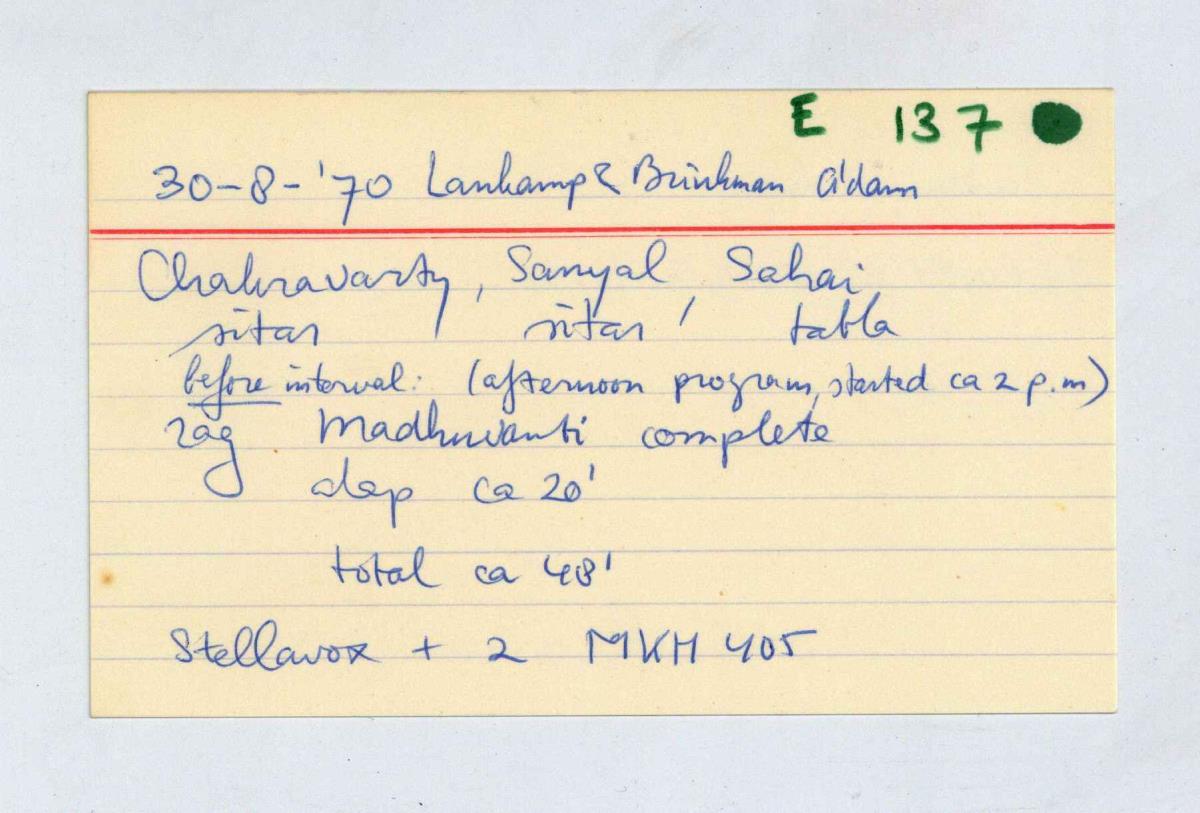 E 137
30-8-'70 Lankamp & Brinkman A'dam
Chakravarty, Sanyal, Sahai,
sitar, sitar, tabla
before interval: (afternoon program, started ca 2 p.m)
rag Madhuvanti complete
alap ca 20'
total ca 48'
Stellavox + 2 MKH 405